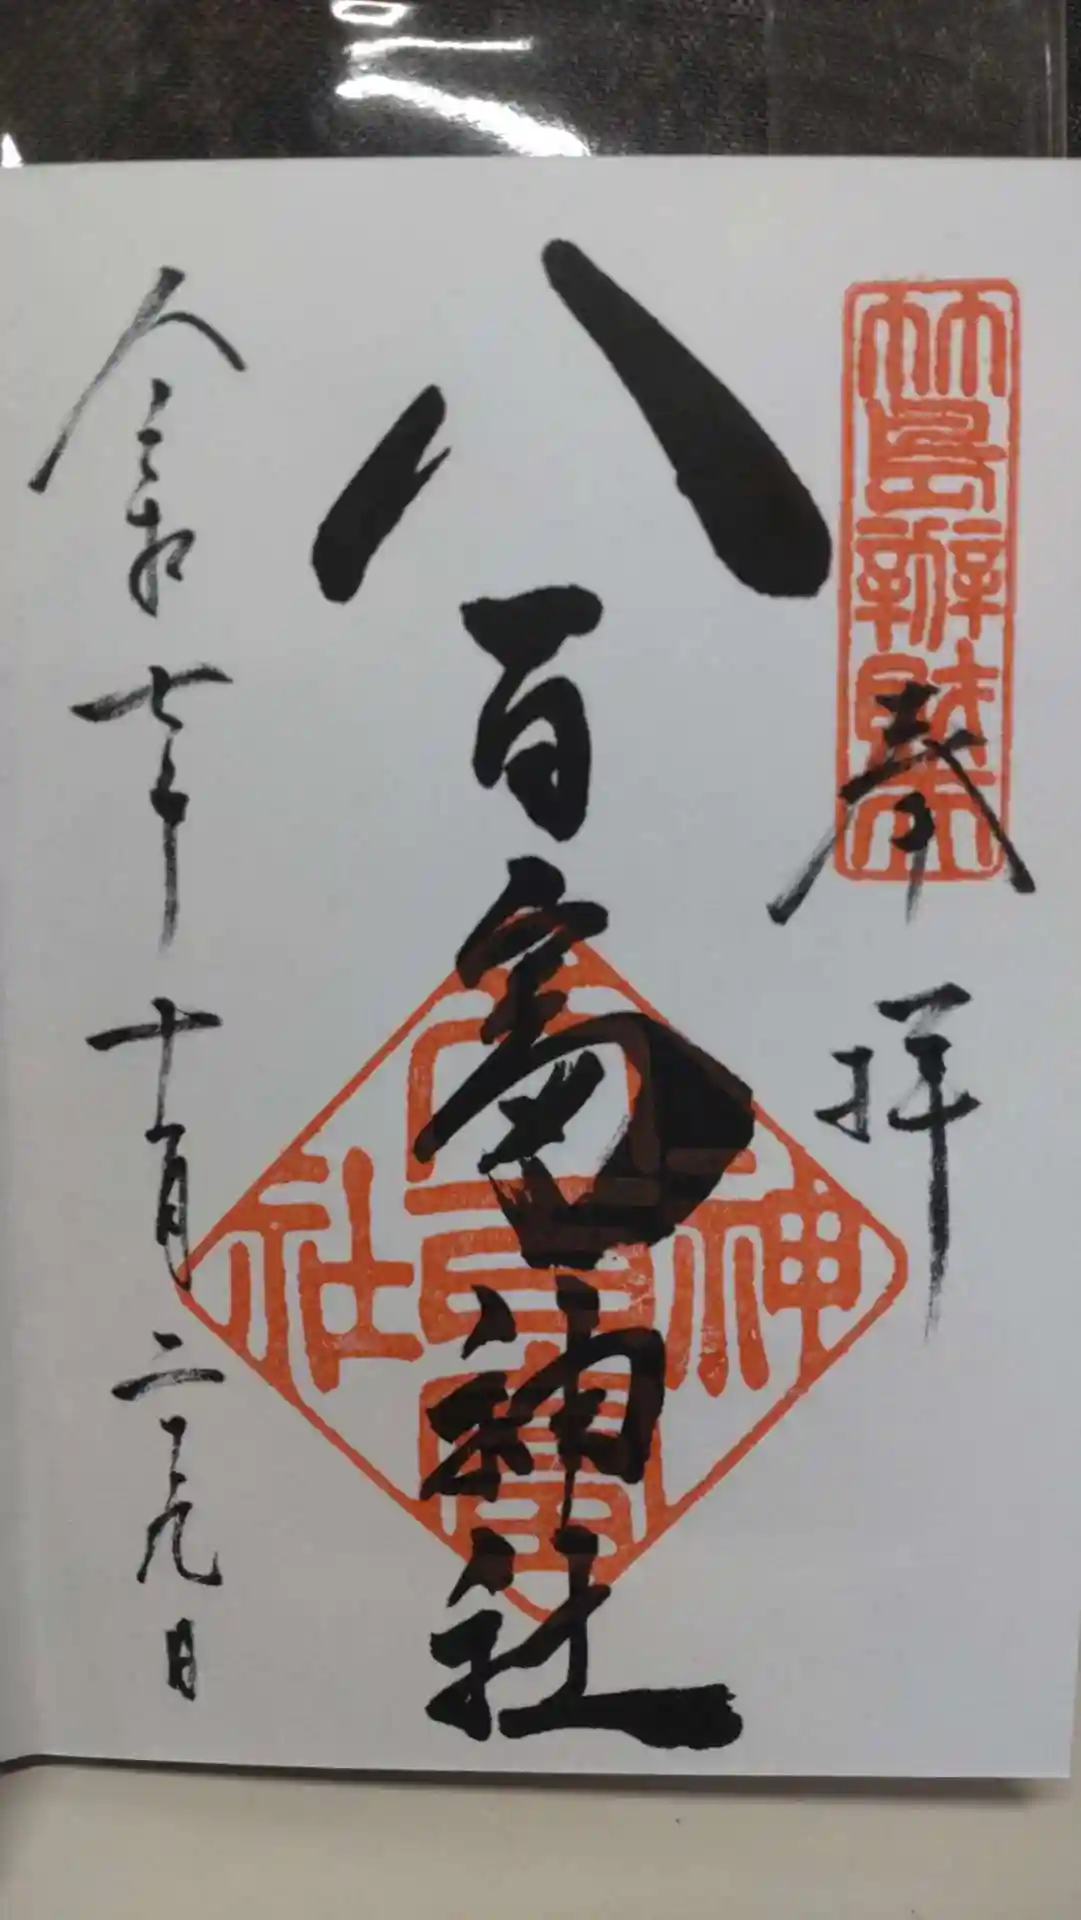 竹島辦財天
奉拝
八百富神社
八百富神社
令和七年十月二十九日